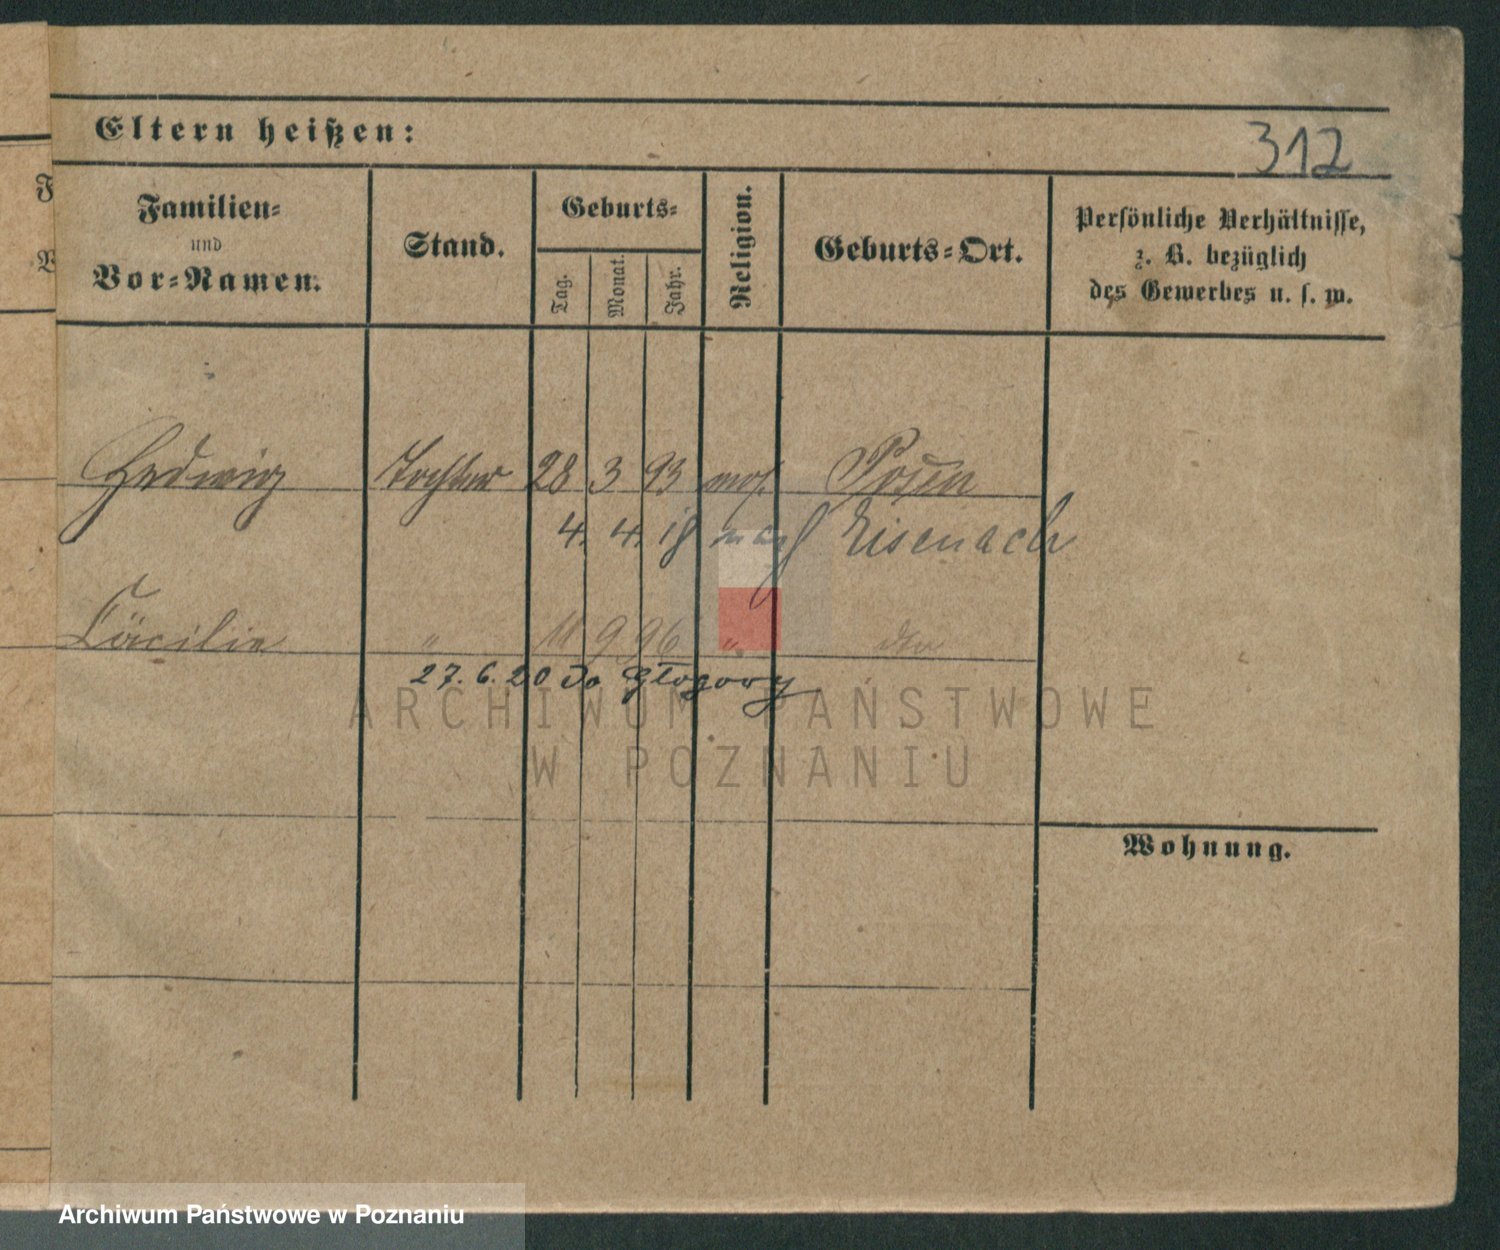 Eltern heißen:
312
Familien-
und
Vor-Namen.
Stand.
Geburts-
Tag.
Monat.
Jahr.
Religion.
Geburts-Ort.
Persönliche Verhältnisse,
z. B. bezüglich
des Gewerbes u. s. w.
Hedwig Tochter 28 3 93 mos. Posen
4. 4. 18 nach Eisenach
Cäcilie " 11 9 96 " dto
27. 6. 20 do Głogowy
ARCHIWUM PAŃSTWOWE
W POZNANIU
Wohnung.
Archiwum Państwowe w Poznaniu